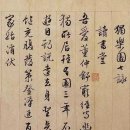 獨樂園七詠
讀書堂
吾愛董仲舒窮經守幽
獨所居雖有園三年不
遊目邪說遠去耳聖言
飽充腹發策登漢庭百
家始消伏